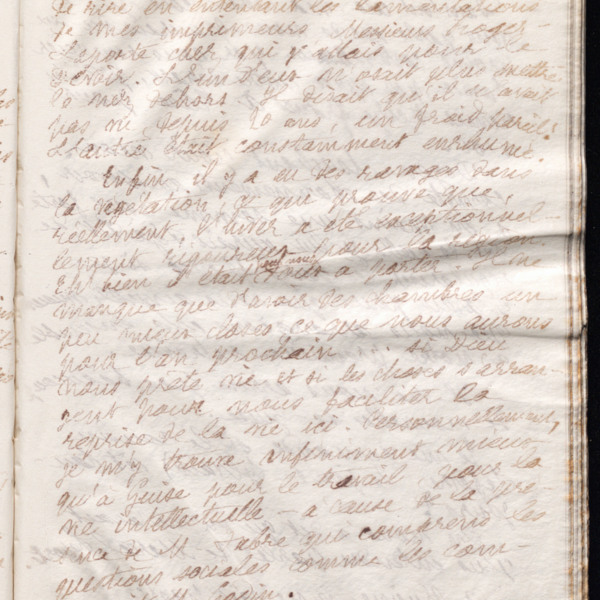 de rire en entendant les lamentations
de mes imprimeurs Messieurs Roger-
Laporte chez qui j'allais pour le
devoir. L'un d'eux n'osait plus mettre
le nez dehors. Il disait qu'il n'avait
pas vu depuis 20 ans, un froid pareil.
L'autre était constamment enrhumé.
Enfin il y a eu des ravages dans
la végétation, ce qui prouve que,
réellement, l'hiver a été exceptionnel-
lement rigoureux pour la région.
Eh bien il était facile à porter. Il ne
manque que d'avoir des chambres un
peu mieux closes ce que nous aurons
pour l'an prochain... si Dieu
nous prête vie et si les choses s'arran-
gent pour nous faciliter la
reprise de la vie ici. Personnellement,
je m'y trouve infiniment mieux
qu'à pour le travail pour la
vie intellectuelle - à cause de la
de M. qui comprend les
questions sociales comme les com-